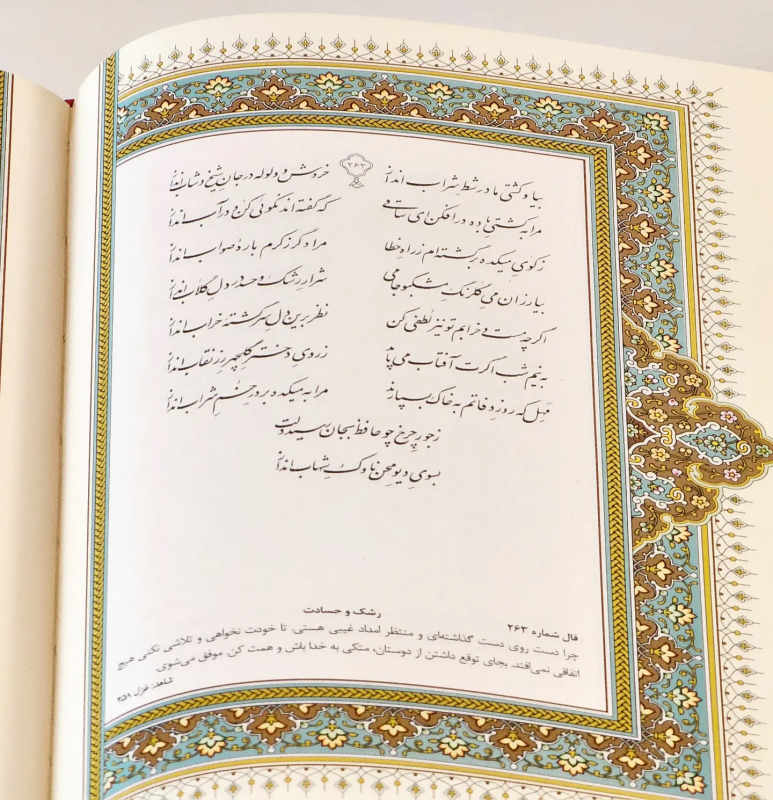 ۲۶۳
بیا و کشتی ما در شط شراب انداز خروش و ولوله در جان شیخ و شاب انداز
مرا به کشتی باده در افکن ای ساقی که گفته اند نکوئی کن و در آب انداز
ز کوی میکده برگشته ام ز راه خطا مرا دگر ز کرم با ره صواب انداز
بیار زان می گلرنگ مشکبو جامی شرار رشک و حسد در دل گلاب انداز
اگر چه مست و خرابم تو نیز لطفی کن نظر برین دل سرگشته خراب انداز
به نیم شب اگرت آفتاب می باید ز روی دختر گلچهر رز نقاب انداز
مهل که روز وفاتم به خاک بسپارند مرا به میکده بر در خم شراب انداز
ز جور چرخ چو حافظ بجان رسید دلت
بسوی دیو محن ناوک شهاب انداز
رشک و حسادت
فال شماره ۲۶۳
چرا دست روی دست گذاشته‌ای و منتظر امداد غیبی هستی. تا خودت نخواهی و تلاشی نکنی هیچ
اتفاقی نمی‌افتد. بجای توقع داشتن از دوستان، متکی به خدا باش و همت کن. موفق می‌شوی.
شاهد: غزل ۲۵۹